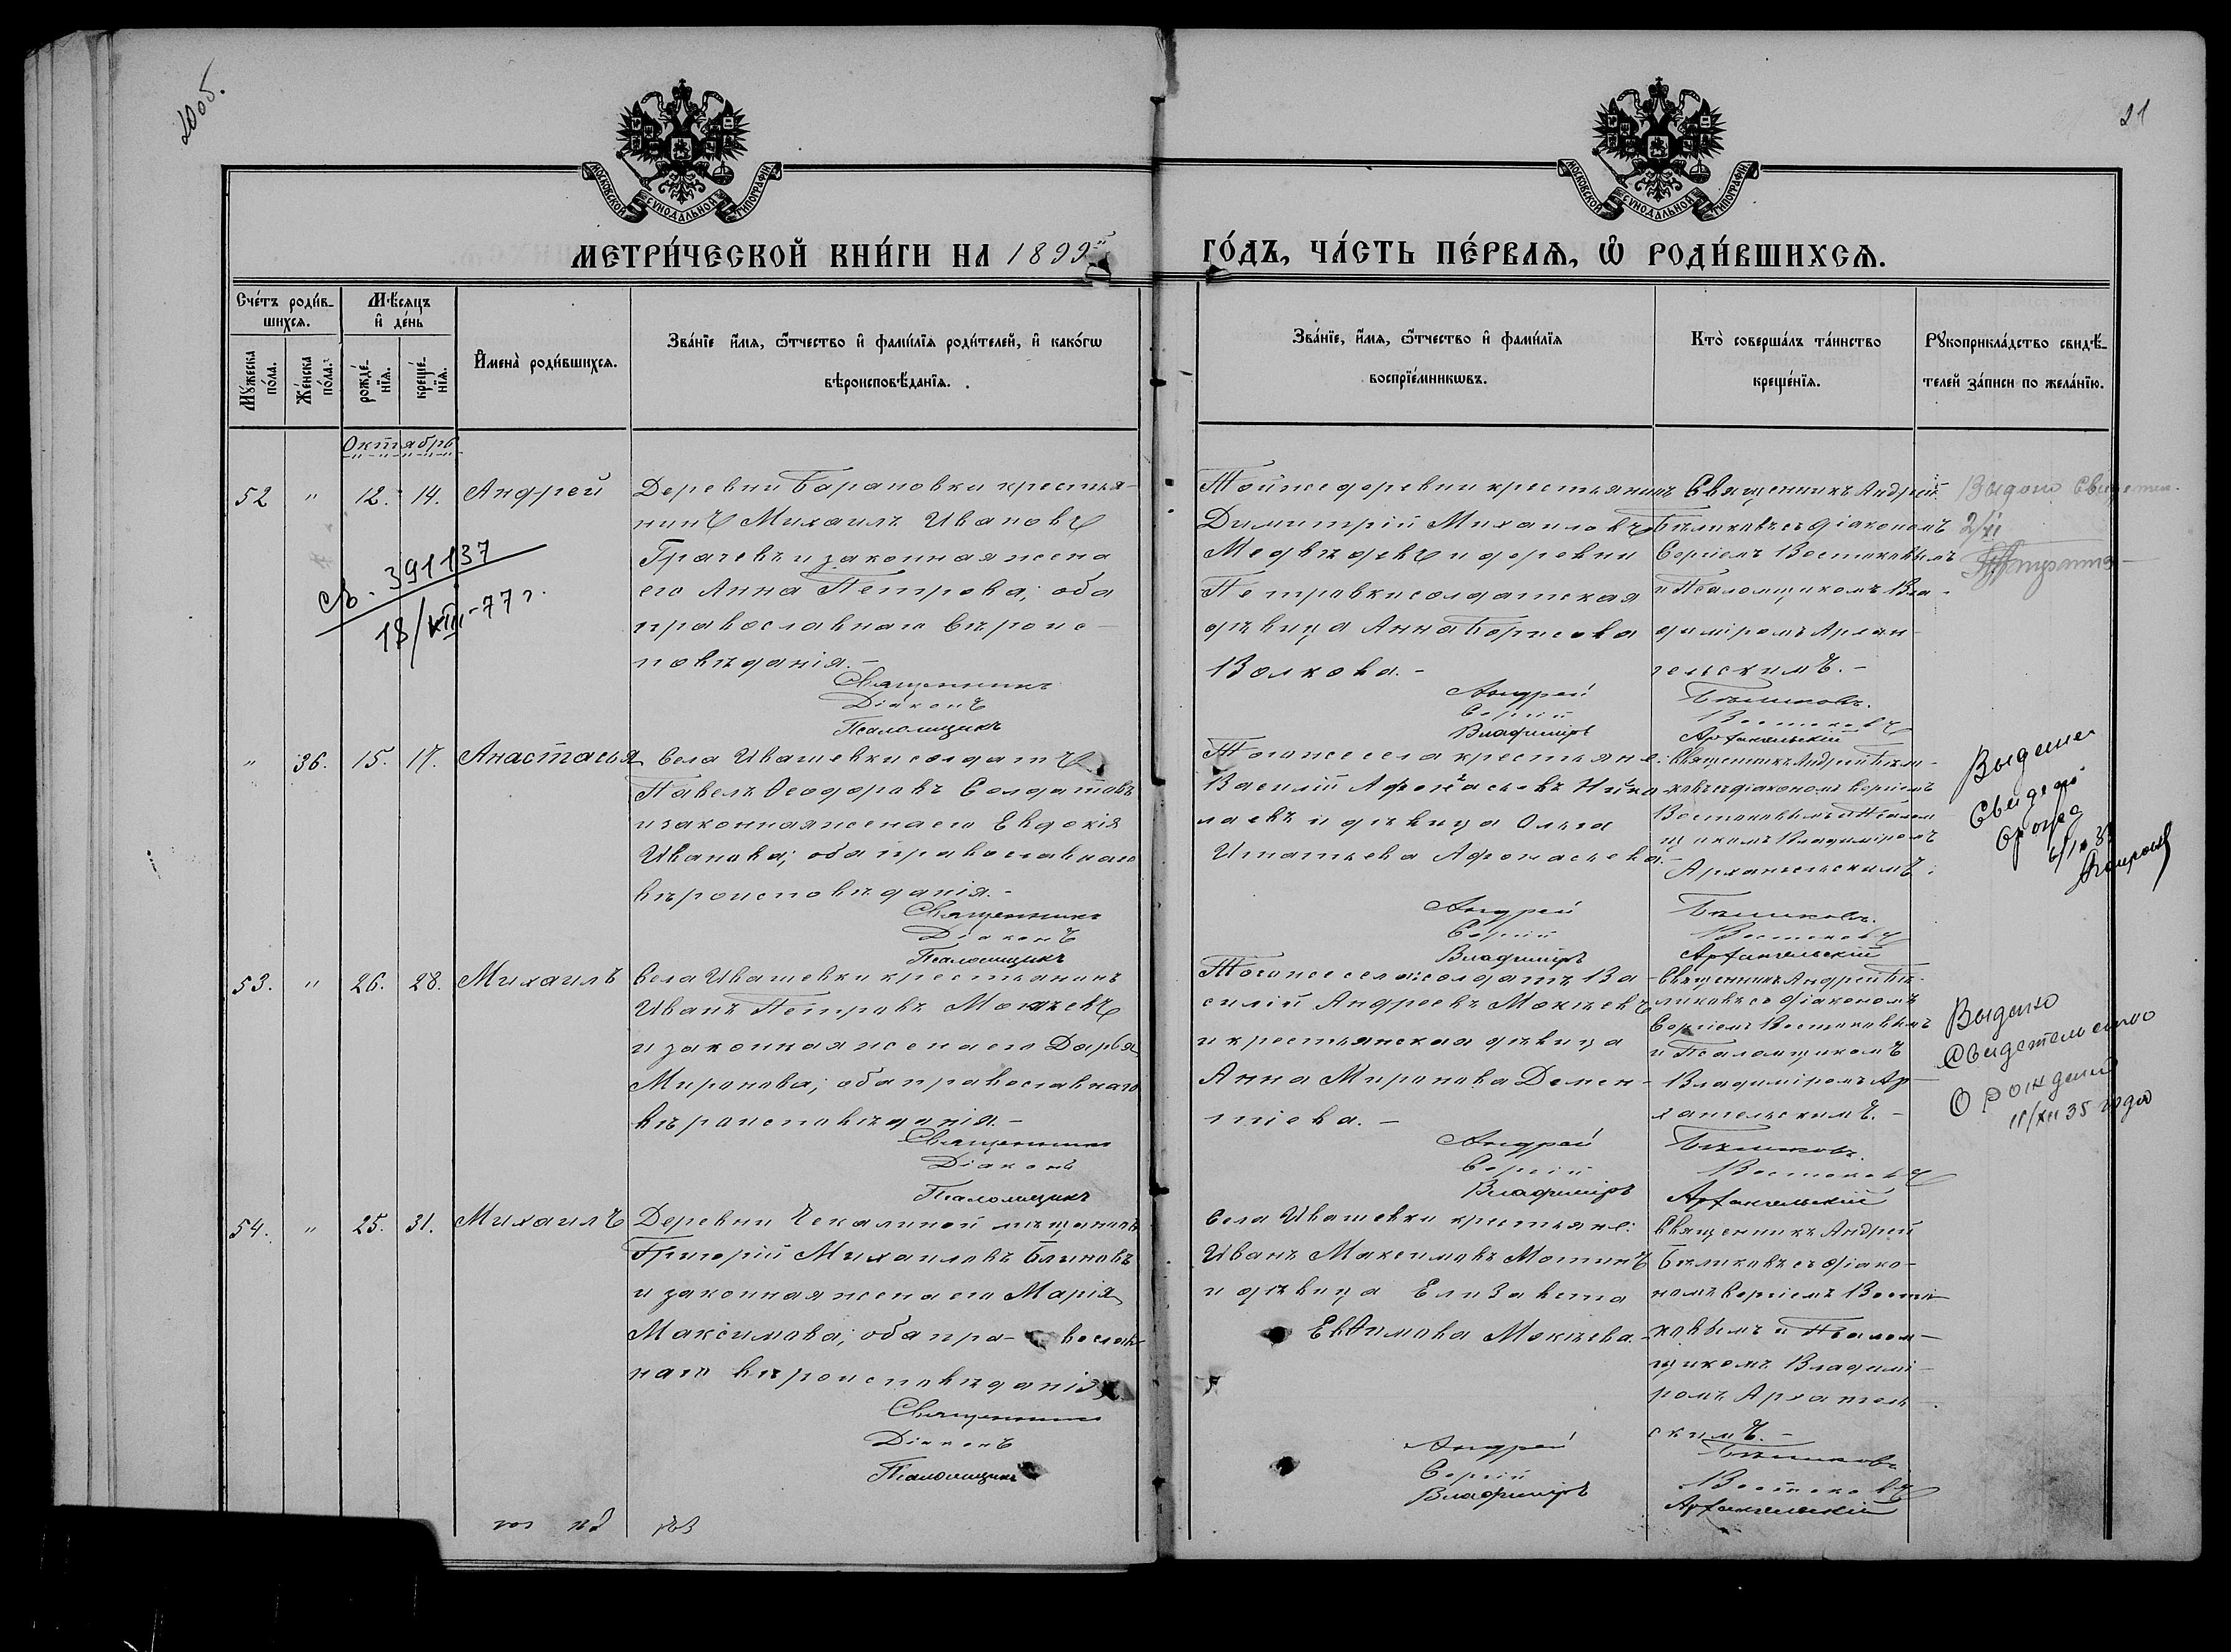 20об.
21
МОСКОВСКОЙ СѴНОДАЛЬНОЙ ТИПОГРАФІИ
МОСКОВСКОЙ СѴНОДАЛЬНОЙ ТИПОГРАФІИ
МЕТРИ́ЧЕСКОЙ КНИ́ГИ НА 1899й
ГО́ДЪ, ЧА́СТЬ ПЕ́РВАѦ, Ѿ РОДИ́ВШИХСѦ.
Сче́тъ роди́в-
шихсѧ.
Мѣ́сяцъ
и҆ де́нь
Мꙋ́жеска
по́ла.
Же́нска
по́ла.
рожде́-
нїѧ.
креще́-
нїѧ.
И҆мена̀ роди́вшихсѧ.
Зва́нїе и҆́мѧ, ѻ҆́тчество и҆ фами́лїѧ роди́телей, и҆ како́гѡ
вѣроисповѣ́данїѧ.
Зва́нїе, и҆́мѧ, ѻ҆́тчество и҆ фами́лїѧ
воспрїе́мникѡвъ.
Кто̀ соверша́лъ та́инство
креще́нїѧ.
Рꙋкоприкла́дство свидѣ́-
телей за́писи по жела́нїю.
Октябрь
52 " 12. 14. Андрей
Деревни Барановки крестья-
нинъ Михаилъ Ивановъ
Грачевъ и законная жена
его Анна Петрова; оба
православнаго вѣроис-
повѣданія.-
Священникъ
Діаконъ
Псаломщикъ
391137
18/VIII-77 г.
Той же деревни крестьянинъ
Димитрій Михаиловъ
Медвѣдевъ и деревни
Петровки солдатская
дѣвица Анна Борисова
Волкова.-
Андрей
Сергій
Владиміръ
Священникъ Андрей
Бѣликовъ съ діакономъ
Сергіемъ Востоковымъ
и Псаломщикомъ Вла-
диміромъ Архан-
гельскимъ.-
Бѣликовъ.
Востоковъ
Архангельскій
Выдано
" 36. 15. 17. Анастасья
Села Ивашевки солдатъ
Павелъ Ѳеодоровъ Солдатовъ
и законная жена его Евдокія
Иванова; оба православнаго
вѣроисповѣданія.-
Священникъ
Діаконъ
Псаломщикъ
Того же села крестьяне:
Василій Афонасьевъ Нико
лаевъ и дѣвица Ольга
Игнатьева Афонасьева.-
Андрей
Сергій
Владиміръ
Священникъ Андрей Бѣли-
ковъ съ діакономъ Сергіемъ
Востоковымъ и Псалом
щикомъ Владиміромъ
Архангельскимъ.
Бѣликовъ.
Востоковъ
Архангельскій
Выдано
Свидет
53. " 26. 28. Михаилъ
Села Ивашевки крестьянинъ
Иванъ Петровъ Мокѣевъ
и законная жена его Дарья
Миронова; оба православнаго
вѣроисповѣданія.-
Священникъ
Діаконъ
Псаломщикъ
Того же села: солдатъ Ва-
силій Андреевъ Мокѣевъ
и крестьянская дѣвица
Анна Миронова Демен-
тіева.-
Андрей
Сергій
Владиміръ
Священникъ Андрей Бѣ-
ликовъ съ діакономъ
Сергіемъ Востоковымъ
и Псаломщикомъ
Владиміромъ Ар-
хангельскимъ.-
Бѣликовъ.
Востоковъ
Архангельскій
Выдано
Свидетельство
О рождении
11/XII 35 года
54. " 25. 31. Михаилъ
Деревни Чекалиной мѣщанинъ
Григорій Михаиловъ Блиновъ
и законная жена его Марія
Максимова; оба пра- вослав-
наго вѣроисповѣданія
Священникъ
Діаконъ
Псаломщикъ
Села Ивашевки крестьяне:
Иванъ Максимовъ Мотинъ
и дѣвица Елизавета
Евѳимова Мокѣева.-
Андрей
Сергій
Владиміръ
Священникъ Андрей
Бѣликовъ съ діако-
номъ Сергіемъ Восто-
ковымъ и Псалом-
щикомъ Владимі-
ромъ Архангель-
скимъ.-
Бѣликовъ.
Востоковъ
Архангельскій